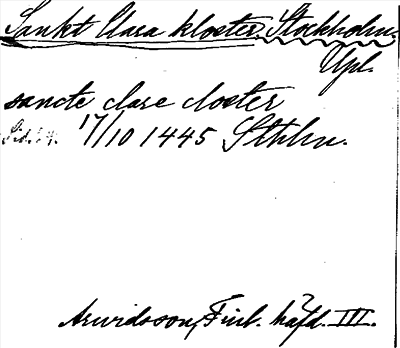 Sankt Clara kloster. Stockholm.
Upl.
sancte clare closter
17/10 1445 Sthlm.
Arwidsson, Finl. häfd. III.